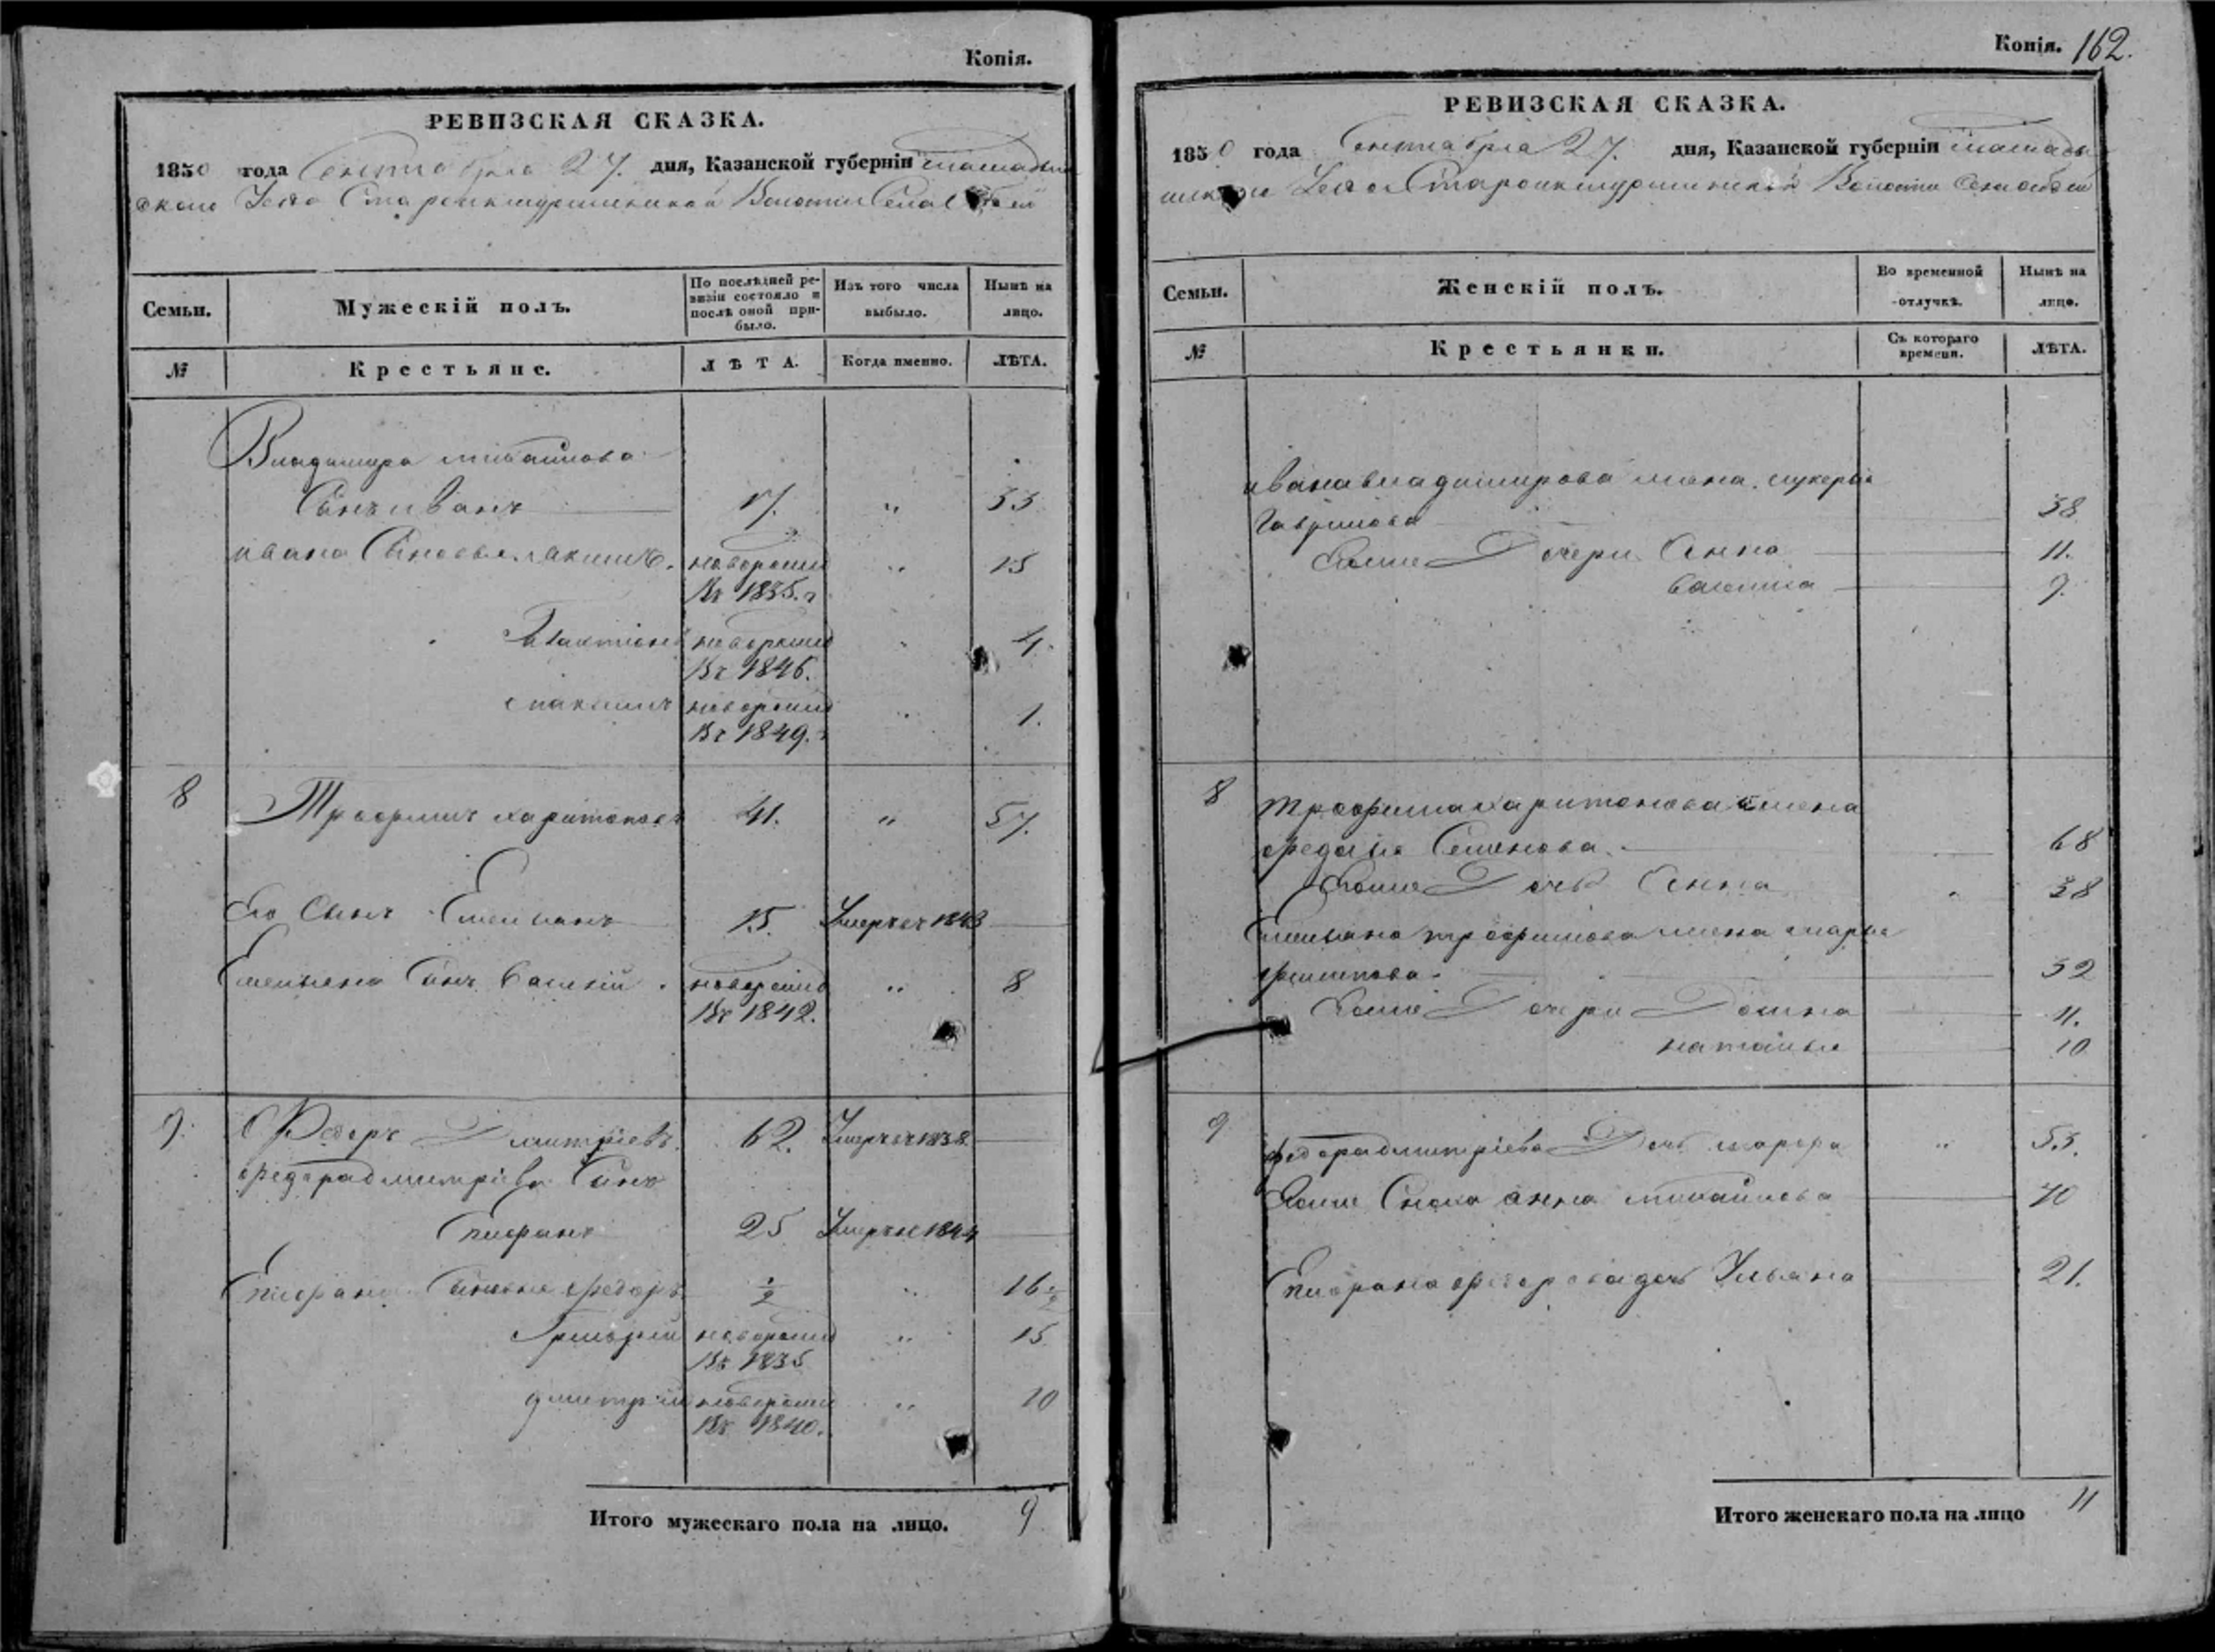 Копія.
РЕВИЗСКАЯ СКАЗКА.
1850 года Сентября 27. дня, Казанской губерніи Мамадыш
скаго Уезда Волости Села
Семьи.
Мужескій полъ.
По послѣдней ре-
визіи состояло и
послѣ оной при-
было.
Изъ того числа
выбыло.
Нынѣ на
лицо.
№
Крестьяне.
ЛѢТА.
Когда именно.
ЛѢТА.
Владимира Михайлова
Сынъ иванъ 17. " 33
ивана Сыновья новорожд " 15
Въ 1835. г
новорожд " 4.
Въ 1846.
новорожд " 1.
Въ 1849. г
8 Трофимъ харитоновъ 41. " 57.
Его Сынъ Емельянъ 15. Умеръ въ 1843
Емельяна Сынъ Василій новорожд " 8
Въ 1842.
9. Федоръ Дмитріевъ 62. Умеръ въ 1838
федора дмитріева Сынъ
Епифанъ 25 Умеръ въ 1844
Епифана Сыновья федоръ 1/2 " 16 1/2
Григорій новорожд " 15
Въ 1835
дмитрій новорожд " 10
Въ 1840.
Итого мужескаго пола на лицо. 9
Копія. 162.
РЕВИЗСКАЯ СКАЗКА.
1850 года Сентября 27. дня, Казанской губерніи Мамады
Уезда Волости Села
Семьи.
Женскій полъ.
Во временной
отлучкѣ.
Нынѣ на
лицо.
№
Крестьянки.
Съ котораго
времени.
ЛѢТА.
ивана владимирова жена лукерья
Гаврилова 38
Ихже Дочери Анна 11.
9.
8 трофима харитонова жена
федосья Семенова 68
Ихже Дочь Анна 38
Емельяна трофимова жена марья
филипова 32
Ихже Дочери Домна 11.
наталья 10
9 федора дмитріева Дочь марфа " 53.
Ихже Сноха анна михайлова 40
Епифана федорова дочь Ульяна 21.
Итого женскаго пола на лицо 11